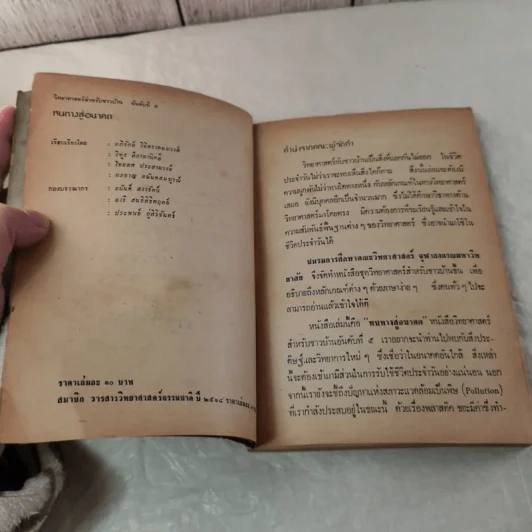 วิทยาศาสตร์สำหรับชาวบ้าน อันดับที่ ๕
หนทางสู่อนาคต
เรียบเรียงโดย :
กองบรรณากร :
ราคาเล่มละ ๑๐ บาท
สมาชิก วารสารวิทยาศาสตร์ธรรมชาติ ปี ๒๕๑๔ ราคาเล่มละ
คำนำจากคณะผู้จัดทำ
วิทยาศาสตร์กับชาวบ้านเป็นสิ่งที่แยกกันไม่ออก ในชีวิต
ประจำวันไม่ว่าเราจะพบเห็นสิ่งใดก็ตาม สิ่งนั้นย่อมจะต้องมี
ความผูกพันไม่ว่าทางใดทางหนึ่ง กับหลักเกณฑ์ในทางวิทยาศาสตร์
เสมอ ยังมีบุคคลอีกเป็นจำนวนมาก ซึ่งไม่ได้ศึกษาวิชาทางด้าน
วิทยาศาสตร์มาโดยตรง มีความต้องการที่จะเรียนรู้และเข้าใจใน
ความสัมพันธ์พื้นฐานต่าง ๆ ของวิทยาศาสตร์ ซึ่งอาจนำมาใช้ใน
ชีวิตประจำวันได้
ชมรมการศึกษาคณะวิทยาศาสตร์ จุฬาลงกรณมหาวิท
ยาลัย จึงจัดทำหนังสือชุดวิทยาศาสตร์สำหรับชาวบ้านขึ้น เพื่อ
อธิบายถึงหลักเกณฑ์ต่าง ๆ ด้วยภาษาง่าย ๆ ซึ่งคนทั่ว ๆ ไปจะ
สามารถอ่านแล้วเข้าใจได้ดี
หนังสือเล่มนี้คือ "หนทางสู่อนาคต" หนังสือวิทยาศาสตร์
สำหรับชาวบ้านอันดับที่ ๕ เราอยากจะนำท่านไปพบกับสิ่งประ-
ดิษฐ์และวิทยาการใหม่ ๆ ซึ่งเชื่อว่าในอนาคตอันใกล้ สิ่งเหล่า
นี้จะต้องเข้ามามีส่วนในการรับใช้ชีวิตประจำวันอย่างแน่นอน นอก
จากนี้เรายังจะชี้ถึงปัญหาแห่งสภาวะแวดล้อมเป็นพิษ (Pollution)
ที่เรากำลังประสบอยู่ในขณะนี้ ด้วยเรื่องพลาสติค ขยะมีค่าซึ่งทำ-